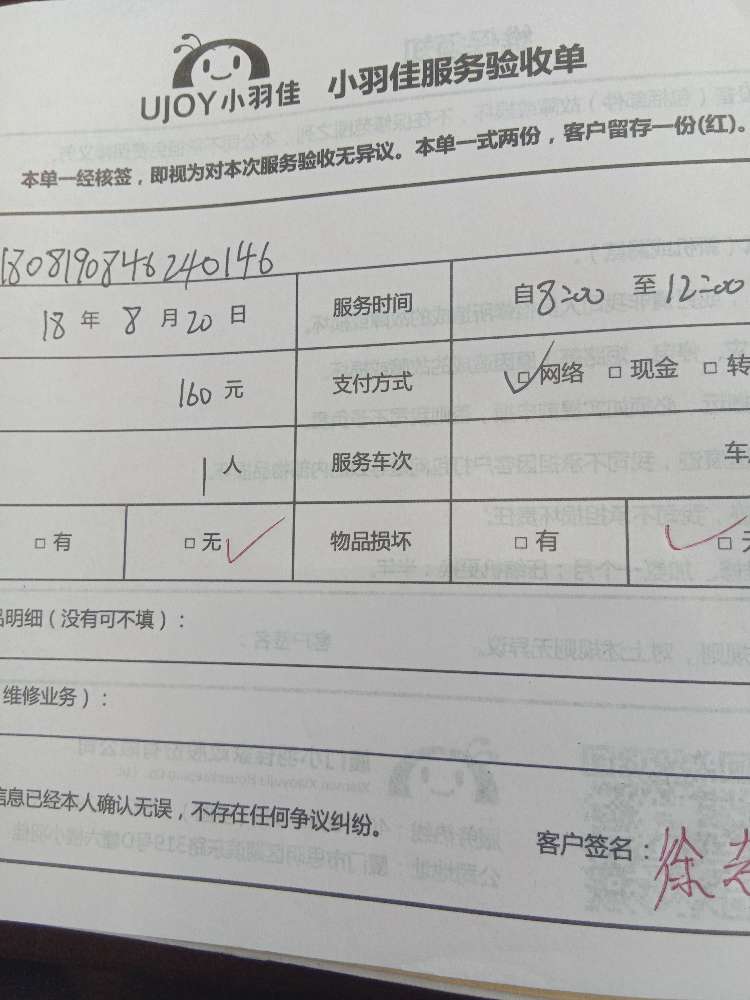 UJOY小羽佳 小羽佳服务验收单
本单一经核签，即视为对本次服务验收无异议。本单一式两份，客户留存一份(红)。
1808190846240146
18 年 8 月 20 日 服务时间 自 8:00 至 12:00
160 元 支付方式 □网络 □现金 □转
1 人 服务车次 车
□有 □无 物品损坏 □有 □
明细（没有可不填）：
维修业务）：
信息已经本人确认无误，不存在任何争议纠纷。
客户签名：徐